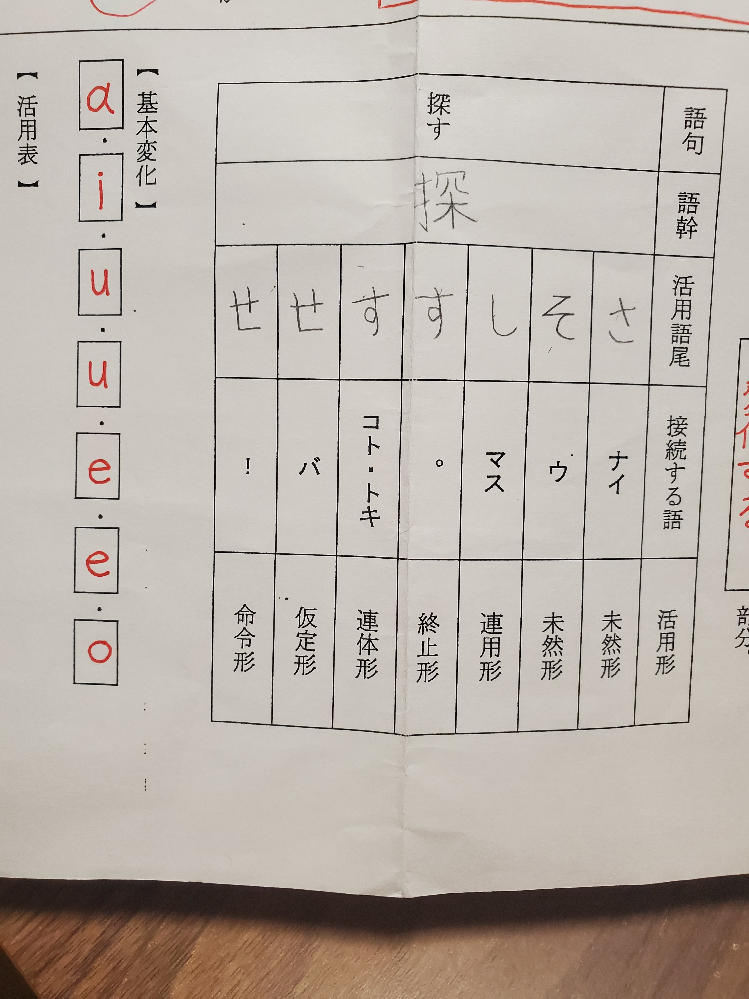 部分
語句
語幹
活用語尾
接続する語
活用形
探す
探
さ
ナイ
未然形
そ
ウ
未然形
し
マス
連用形
す
。
終止形
す
コト・トキ
連体形
せ
バ
仮定形
せ
！
命令形
【基本変化】
a・i・u・u・e・e・o
【活用表】